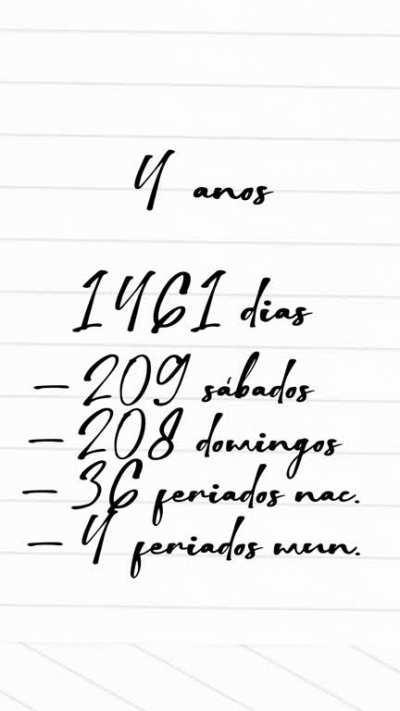 4 anos
1461 dias
- 209 sábados
- 208 domingos
- 36 feriados nac.
- 4 feriados mun.